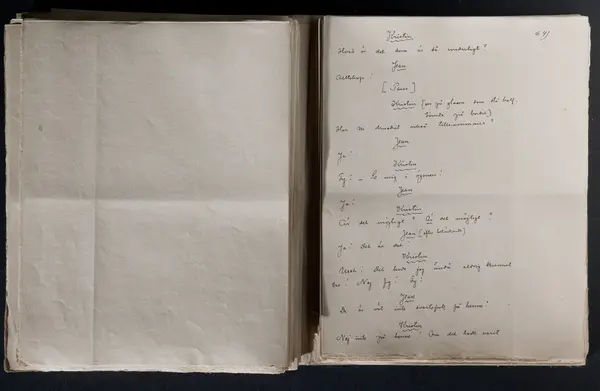 Kristin
Hvad är det som är så underligt?
Jean
Alltihop!
[Paus]
Kristin (ser på glasen som stå half-
tömda på bordet)
Har Ni druckit också tillsammans?
Jean
Ja!
Kristin
Fy! – Se mig i ögonen!
Jean
Ja!
Kristin
Är det möjligt? Är det möjligt?
Jean (efter betänkande)
Ja! det är det!
Kristin
Usch! det hade jag ändå aldrig kunnat
tro! Nej fy! fy!
Jean
Du är väl inte svartsjuk på henne?
Kristin
Nej inte på henne! Om det hade varit